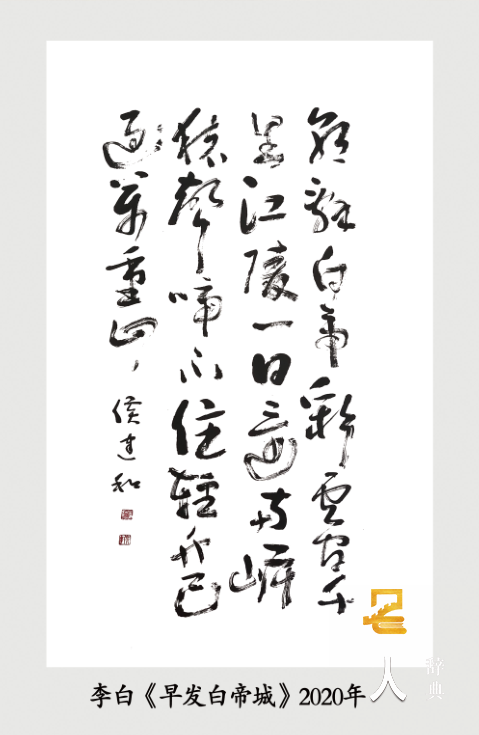 朝辭白帝彩雲間千
里江陵一日還兩岸
猿聲啼不住輕舟已
過萬重山
侯建和
李白《早发白帝城》2020年
人
辞典